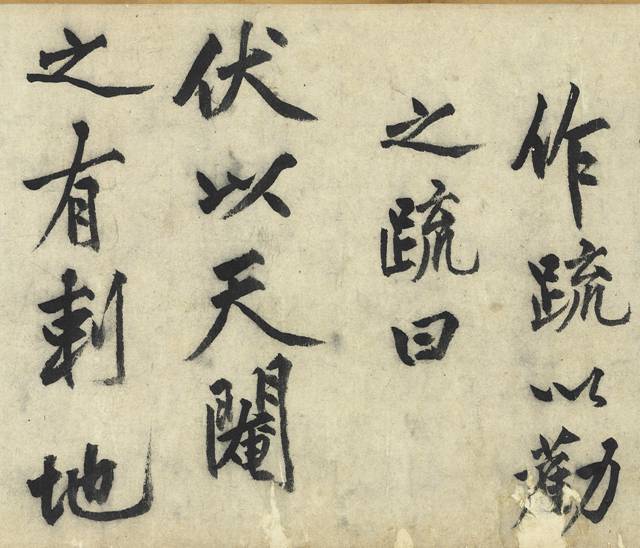 作疏以勸
之疏曰
伏以天閹
之有刺地